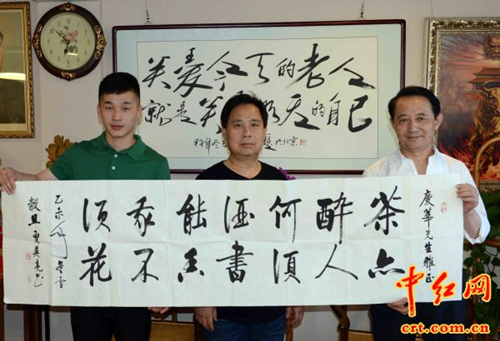 关爱今天的老人
就是关天的自己
慶華先生雅正
茶亦
醉人
何須
酒書
能香
我不
須花
乙未年
穀旦
中红网
crt.com.cn